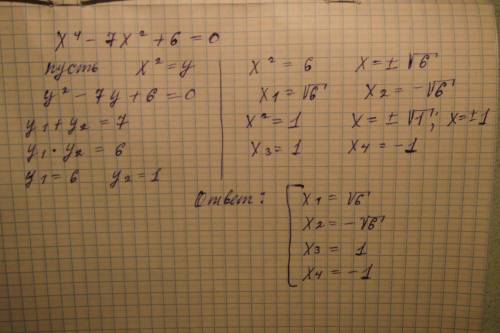 x⁴ - 7x² + 6 = 0
пусть x² = y
y² - 7y + 6 = 0
y₁ + y₂ = 7
y₁ · y₂ = 6
y₁ = 6 y₂ = 1
x² = 6 x = ± √6
x₁ = √6 x₂ = -√6
x² = 1 x = ± √1; x = ±1
x₃ = 1 x₄ = -1
Ответ:
x₁ = √6
x₂ = -√6
x₃ = 1
x₄ = -1